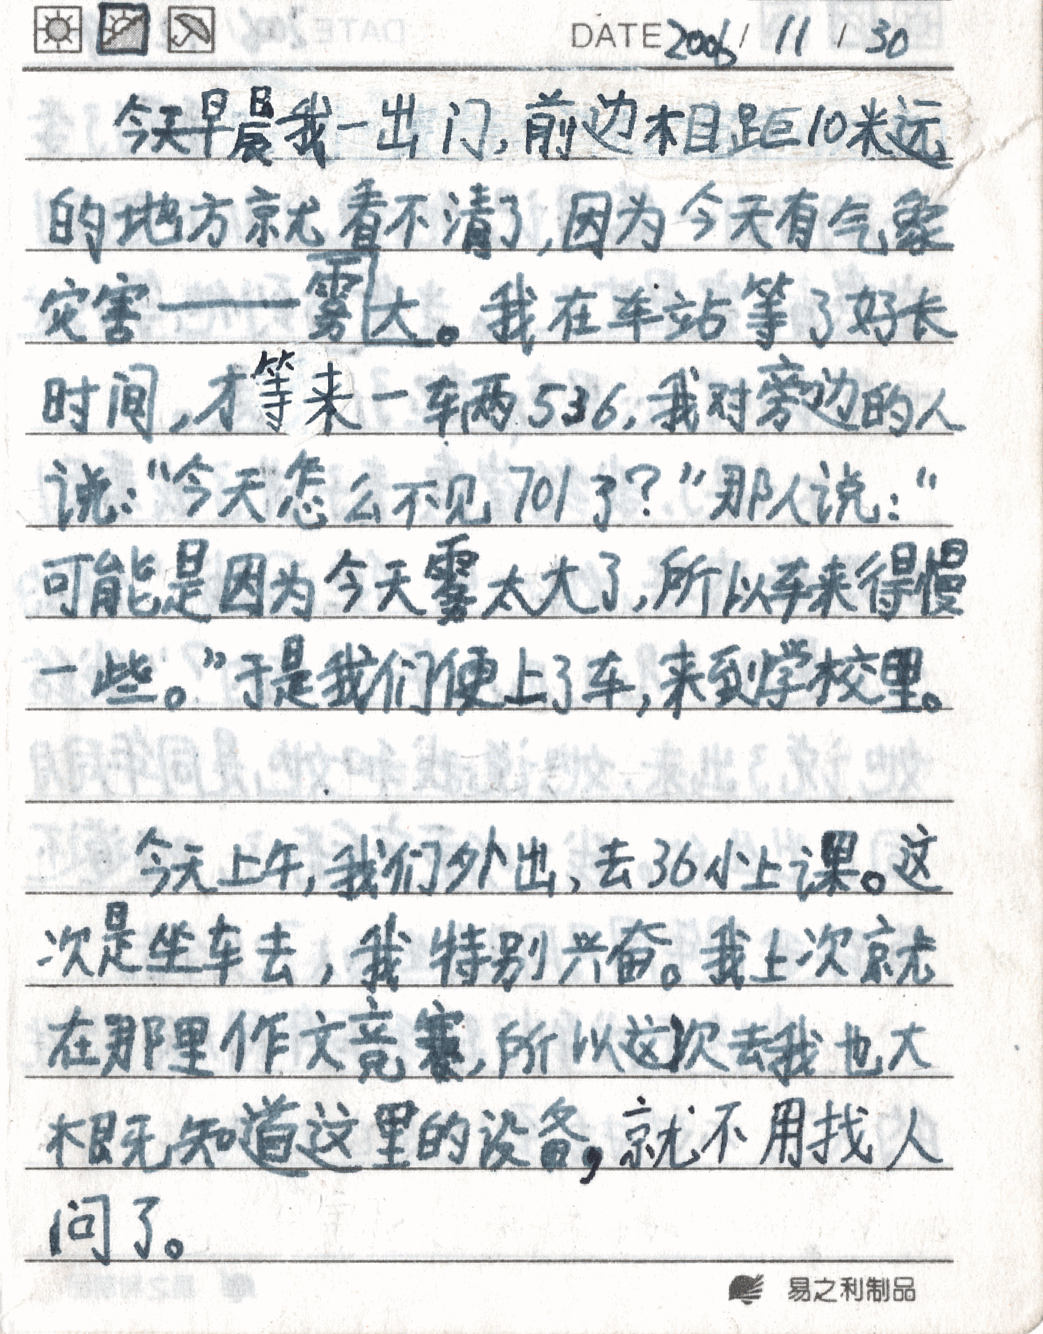 DATE 2006 / 11 / 30
今天早晨我一出门,前边相距10米远
的地方就看不清了,因为今天有气象
灾害——雾大。我在车站等了好长
时间,才等来一车两536,我对旁边的人
说:“今天怎么不见701了?”那人说:“
可能是因为今天雾太大了,所以车来得慢
一些。”于是我们便上了车,来到学校里。
今天上午,我们外出,去36小上课。这
次是坐车去,我特别兴奋。我上次就
在那里作文竞赛,所以这次去我也大
概知道这里的设备,就不用找人
问了。
易之利制品